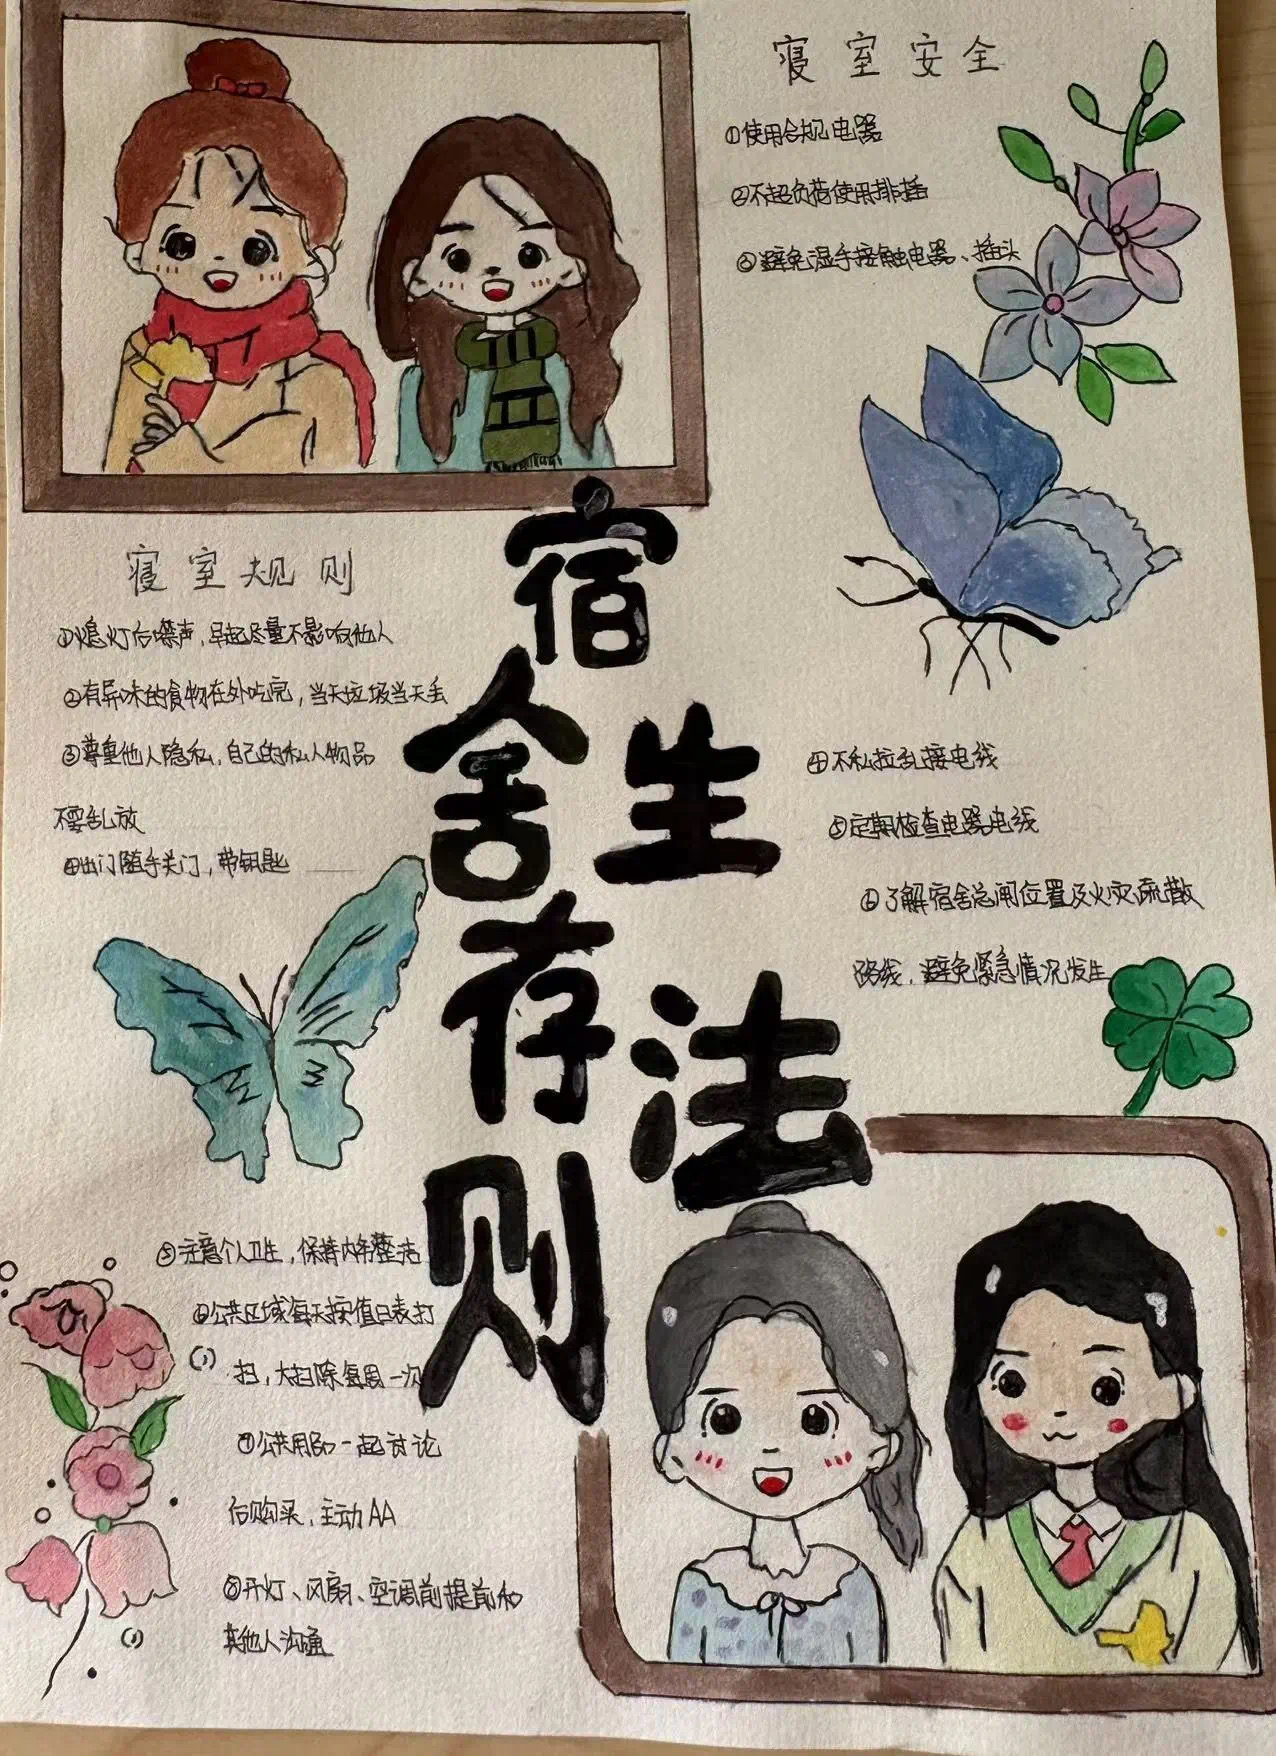 寝室安全
①使用合规电器
②不超负荷使用排插
③避免湿手接触电器、插头
宿舍生存法则
寝室规则
①熄灯后噤声,早起尽量不影响他人
②有异味的食物在外吃完,当天垃圾当天丢
③尊重他人隐私,自己的私人物品
不要乱放
④出门随手关门,带钥匙
④不私拉乱接电线
⑤定期检查电器电线
⑥了解宿舍总闸位置及火灾疏散
路线,避免紧急情况发生
⑤注意个人卫生,保持内务整洁
⑥公共区域每天按值日表打
扫,大扫除每周一次
⑦公共用品一起讨论
后购买,主动AA
⑧开灯、风扇、空调前提前和
其他人沟通